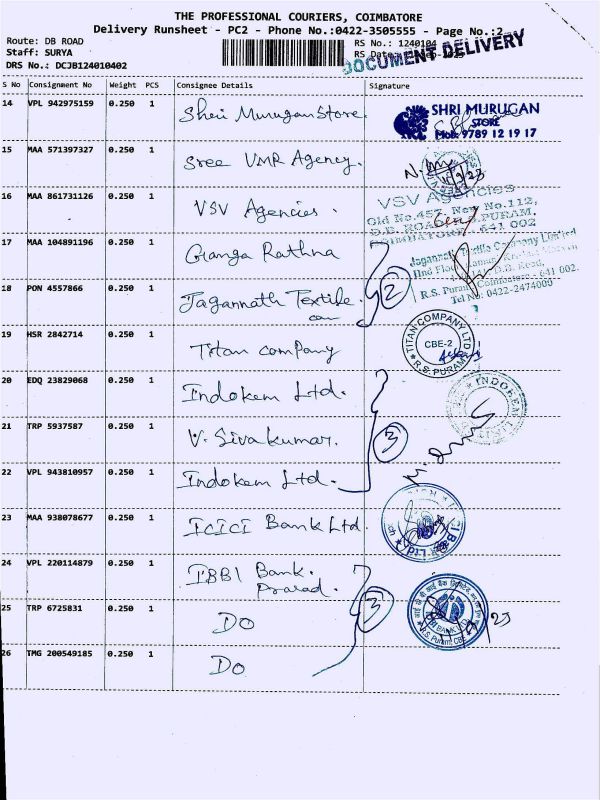 THE PROFESSIONAL COURIERS, COIMBATORE
Delivery Runsheet - PC2 - Phone No.:0422-3505555 - Page No.:2
Route: DB ROAD
Staff: SURYA
DRS No.: DCJB124010402
RS No.: 1240104
RS Date
DOCUMENT DELIVERY
S No Consignment No Weight PCS Consignee Details Signature
14 VPL 942975159 0.250 1 Shri Murugan Store
SHRI MURUGAN
STORE
Mob: 9789 12 19 17
15 MAA 571397327 0.250 1 Sree VMR Agency.
16 MAA 861731126 0.250 1 VSV Agencies.
VSV Agencies
Old No.457, New No.112,
D.B. ROAD, R.S.PURAM,
COIMBATORE - 641 002
17 MAA 104891196 0.250 1 Ganga Rathna
18 PON 4557866 0.250 1 Jagannath Textile
2
Jagannath Textile Company Limited
IInd Floor
D.B. Road,
R.S. Puram, Coimbatore - 641 002.
Tel No: 0422-2474000
19 HSR 2842714 0.250 1 Titan company
TITAN COMPANY LTD
CBE-2
R.S. PURAM
20 EDQ 23829068 0.250 1 Indokem Ltd.
INDOKEM LIMITED
21 TRP 5937587 0.250 1 V. Siva kumar.
3
22 VPL 943810957 0.250 1 Indokem Ltd.
23 MAA 938078677 0.250 1 ICICI Bank Ltd.
24 VPL 220114879 0.250 1 IBBI Bank.
Prasad.
3
25 TRP 6725831 0.250 1 DO
R.S. Puram, CBE
26 TMG 200549185 0.250 1 DO